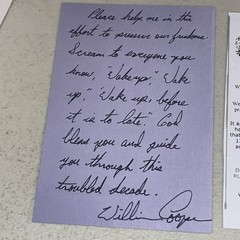 Please help me in the
effort to preserve our freedoms.
Scream to everyone you
know, "Wake up," "Wake
up," "Wake up, before
it is to late." God
bless you and guide
you through this
troubled decade.
William Cooper